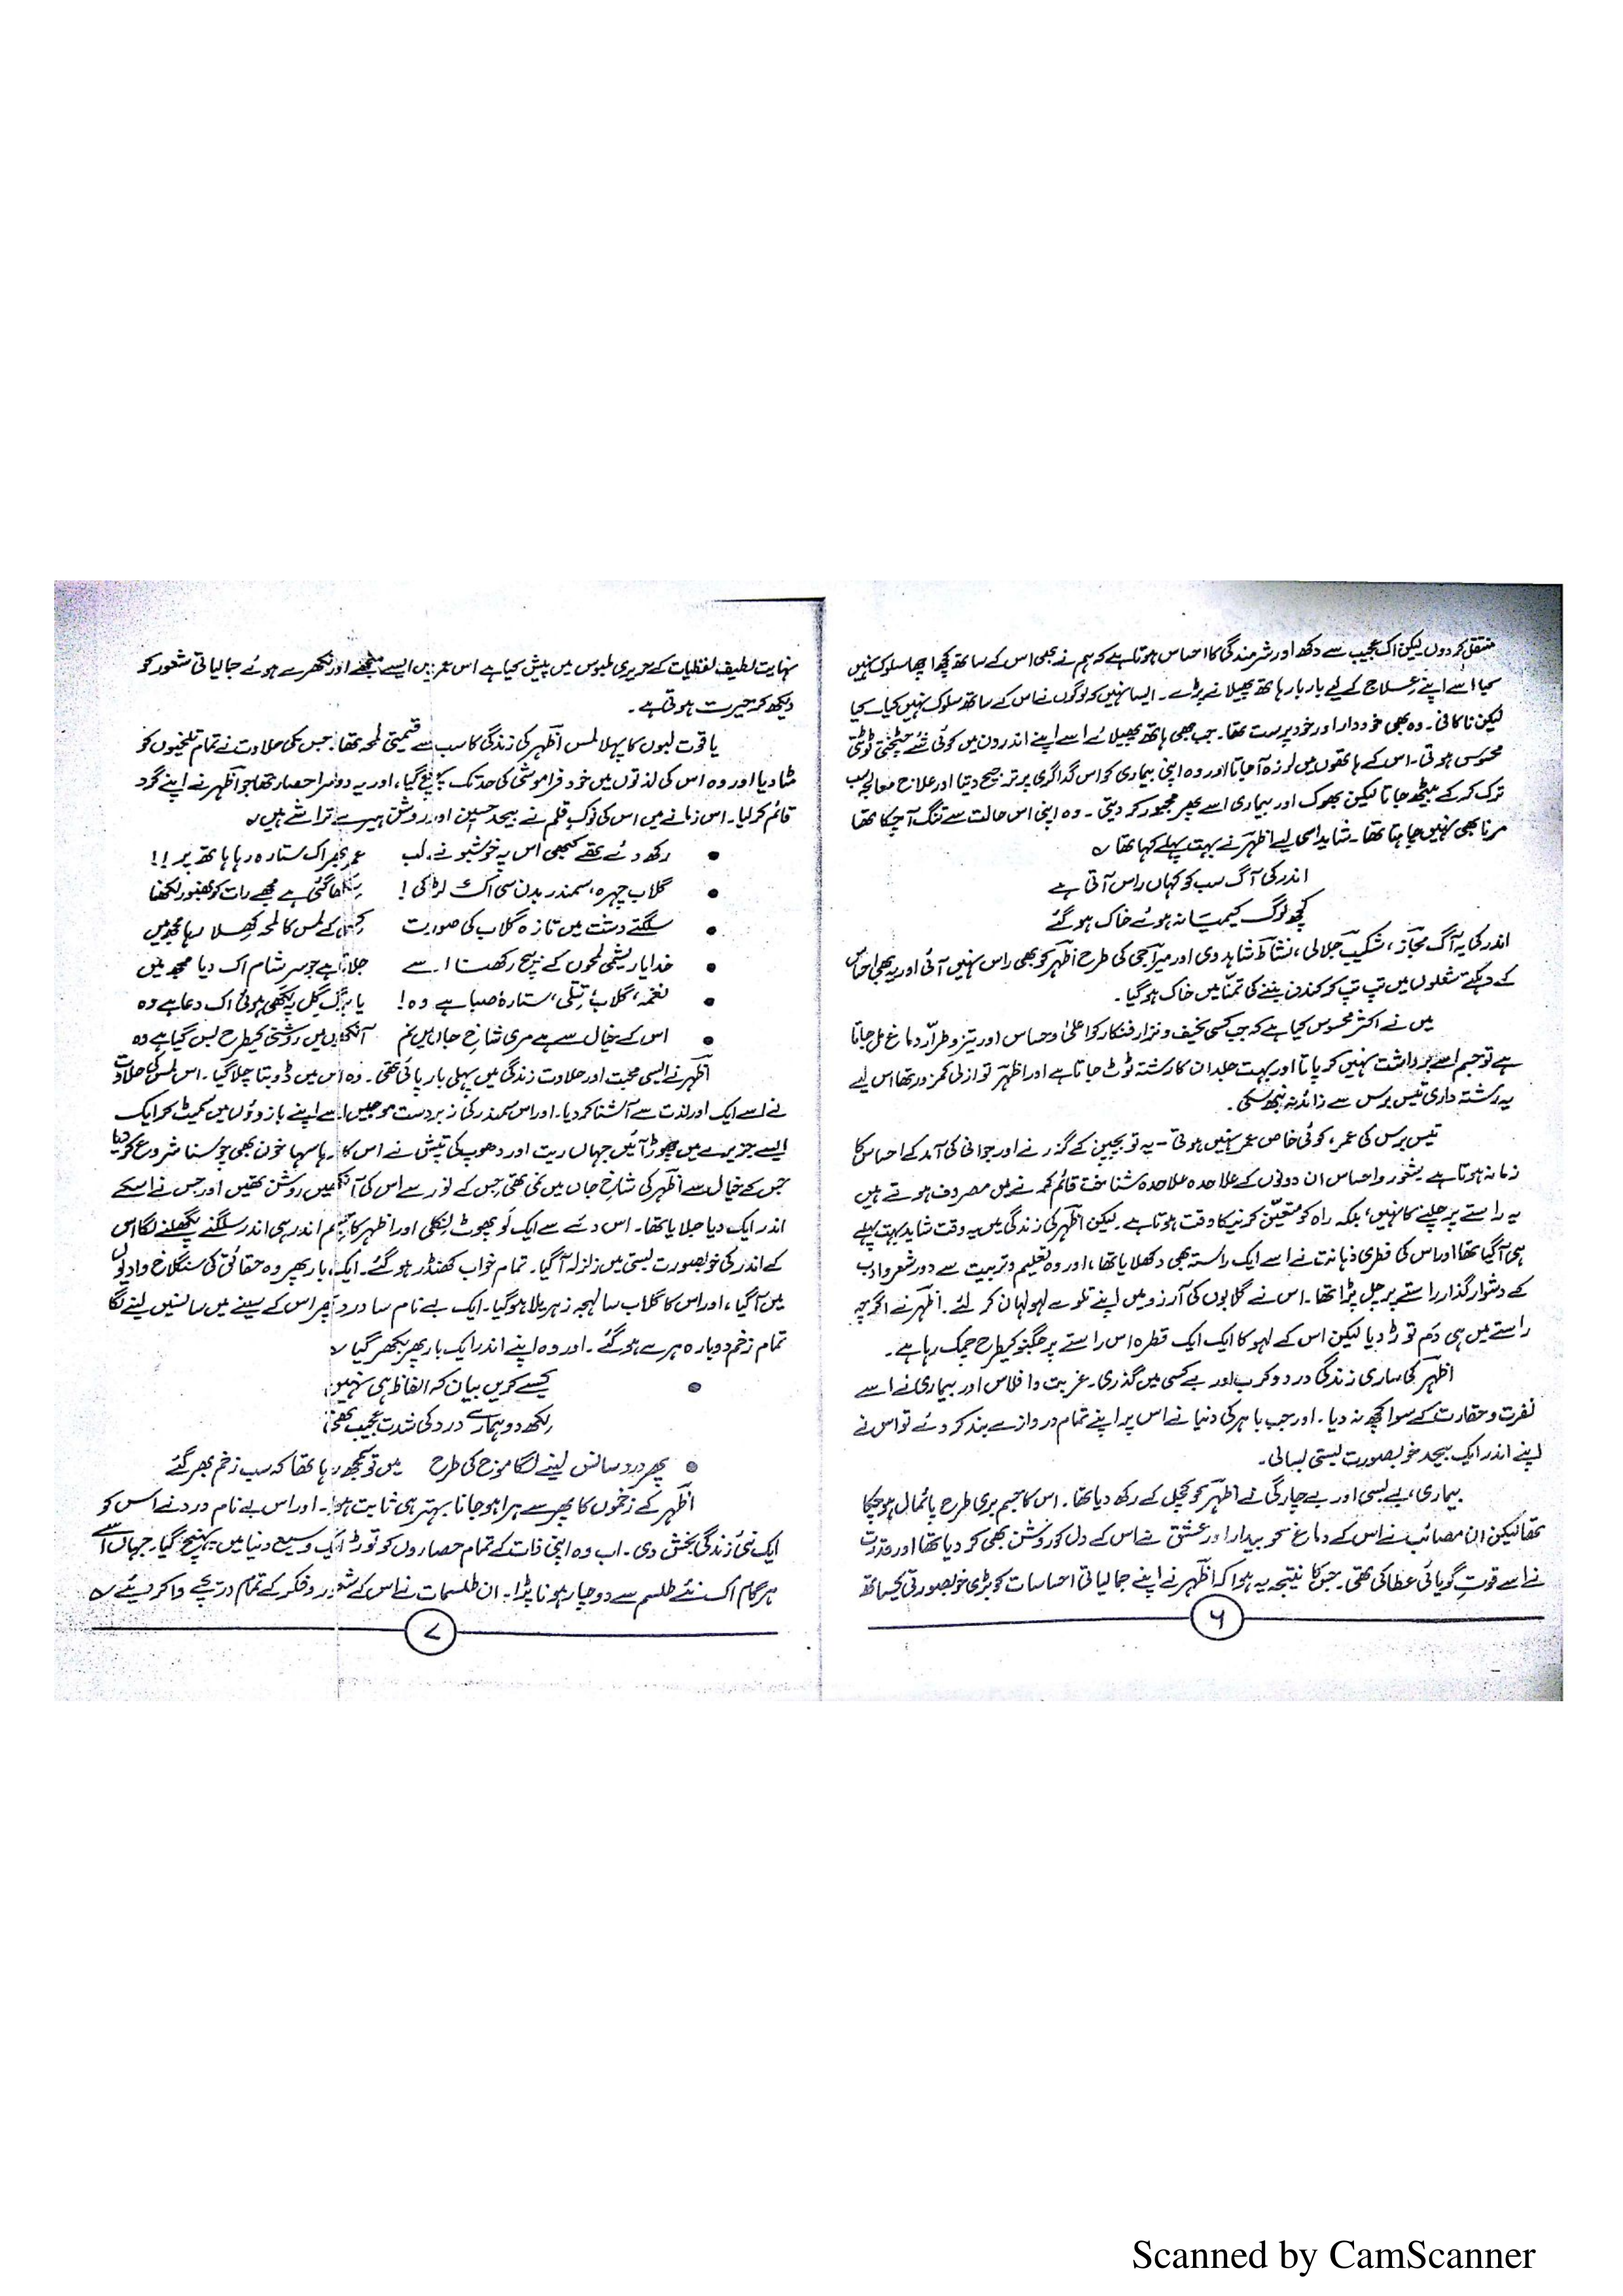 منتقل کر دوں لیکن اک عجیب سے دکھ اور شرمندگی کا احساس ہوتا ہے کہ ہم نے بھی اس کے ساتھ کچھ اچھا سلوک نہیں
کیا اسے اپنے علاج کے لیے بار بار ہاتھ پھیلانے پڑے۔ ایسا نہیں کہ لوگوں نے اس کے ساتھ سلوک نہیں کیا۔ کیا
لیکن ناکافی۔ وہ بھی خوددار اور خود پرست تھا۔ جب بھی ہاتھ پھیلائے اسے اپنے اندرون میں کوئی شئے چٹختی ٹوٹتی
محسوس ہوتی۔ اس کے ہاتھوں میں لرزہ آ جاتا اور وہ اپنی بیماری کو اس گداگری پر ترجیح دیتا اور علاج معالجہ سب
ترک کر کے بیٹھ جاتا لیکن بھوک اور بیماری اسے پھر مجبور کر دیتی۔ وہ اپنی اس حالت سے تنگ آ چکا تھا
مرنا بھی نہیں چاہتا تھا۔ شاید اسی لیے اظہرؔ نے بہت پہلے کہا تھا ؎
اندر کی آگ سب کو کہاں راس آتی ہے
کچھ لوگ کیمیا نہ ہوئے خاک ہو گئے
اندر کی یہ آگ مجازؔ، شکیبؔ جلالی، نشاطؔ شاہدوی اور میراجیؔ کی طرح اظہرؔ کو بھی راس نہیں آئی اور یہ بھی احساس
کے دہکتے شعلوں میں تپ تپ کو کندن بننے کی تمنا میں خاک ہو گیا۔
میں نے اکثر محسوس کیا ہے کہ جب کسی نحیف و نزار فنکار کو اعلیٰ و حساس اور تیز و طرّار دماغ مل جاتا
ہے تو جسم اسے برداشت نہیں کر پاتا اور بہت جلد ان کا رشتہ ٹوٹ جاتا ہے اور اظہرؔ تو ازلی کمزور تھا اس لیے
یہ رشتہ داری تیس برس سے زائد نہ نبھ سکی۔
تیس برس کی عمر، کوئی خاص عمر نہیں ہوتی - یہ تو بچپن کے گذرنے اور جوانی کی آمد کے احساس کا
زمانہ ہوتا ہے شعور و احساس ان دونوں کے علاحدہ علاحدہ شناخت قائم کرنے میں مصروف ہوتے ہیں
یہ راستے پر چلنے کا نہیں، بلکہ راہ کو متعیّن کرنیکا وقت ہوتا ہے۔ لیکن اظہرؔ کی زندگی میں یہ وقت شاید بہت پہلے
ہی آ گیا تھا اور اس کی فطری ذہانت نے اسے ایک راستہ بھی دکھلایا تھا، اور وہ تعلیم و تربیت سے دور شعر و ادب
کے دشوار گذار راستے پر چل پڑا تھا۔ اس نے گلابوں کی آرزو میں اپنے تلوے لہولہان کر لئے۔ اظہرؔ نے اگرچہ
راستے میں ہی دَم توڑ دیا لیکن اس کے لہو کا ایک ایک قطرہ اس راستے پر جگنو کیطرح چمک رہا ہے۔
اظہرؔ کی ساری زندگی درد و کرب اور بے کسی میں گذری۔ غربت و افلاس اور بیماری نے اسے
نفرت و حقارت کے سوا کچھ نہ دیا۔ اور جب باہر کی دنیا نے اس پر اپنے تمام دروازے بند کر دئے تو اس نے
اپنے اندر ایک بیحد خوبصورت بستی بسالی۔
بیماری، بے بسی اور بے چارگی نے اظہرؔ کو کچل کے رکھ دیا تھا۔ اس کا جسم بری طرح پائمال ہو چکا
تھا لیکن ان مصائب نے اس کے دماغ کو بیدار اور عشق نے اس کے دل کو روشن بھی کر دیا تھا اور قدرت
نے اسے قوتِ گویائی عطا کی تھی۔ جس کا نتیجہ یہ ہوا کہ اظہرؔ نے اپنے جمالیاتی احساسات کو بڑی خوبصورتی کیساتھ
۶
نہایت لطیف لفظیات کے حریری ملبوس میں پیش کیا ہے اس عمر میں ایسے منجھے اور نکھرے ہوئے جمالیاتی شعور کو
دیکھ کر حیرت ہوتی ہے۔
یاقوت لبوں کا پہلا لمس اظہرؔ کی زندگی کا سب سے قیمتی لمحہ تھا۔ جس کی حلاوت نے تمام تلخیوں کو
مٹا دیا اور وہ اس کی لذتوں میں خود فراموشی کی حد تک پہنچ گیا، اور یہ دوسرا حصار تھا جو اظہرؔ نے اپنے گرد
قائم کر لیا۔ اس زمانے میں اس کی نوکِ قلم نے بیحد حسین اور روشن ہیرے تراشے ہیں ؎
• رکھ دئے تھے کبھی اس پہ خوشبو نے لب عمر بھر اک ستارہ رہا ہاتھ پر !!
• گلاب چہرہ، سمندر بدن سی اک لڑکی ! سکھا گئی ہے مجھے رات کو بھنور لکھنا
• سلگتے دشت میں تازہ گلاب کی صورت کسی کے لمس کا لمحہ کھلا رہا مجھ میں
• خدایا ریشمی لمحوں کے بیچ رکھنا اسے جلاتا ہے جو سرِ شام اک دیا مجھ میں
• نغمہ، گلاب، تتلی، ستارہ، صبا ہے وہ! یا برگِ گل پہ لکھی ہوئی اک دعا ہے وہ
• اس کے خیال سے ہے مری شاخِ جاں میں نم آنکھوں میں روشنی کیطرح بس گیا ہے وہ
اظہرؔ نے ایسی محبت اور حلاوت زندگی میں پہلی بار پائی تھی۔ وہ اس میں ڈوبتا چلا گیا۔ اس لمس کی حلاوت
نے اسے ایک اور لذت سے آشنا کر دیا۔ اور اس سمندر کی زبردست موجیں اسے اپنے بازوؤں میں سمیٹ کر ایک
ایسے جزیرے میں چھوڑ آئیں جہاں ریت اور دھوپ کی تپش نے اس کا رہا سہا خون بھی چوسنا شروع کر دیا
جس کے خیال سے اظہرؔ کی شاخِ جاں میں نمی تھی جس کے نور سے اس کی آنکھیں روشن تھیں اور جس نے اسکے
اندر ایک دیا جلایا تھا۔ اس دئے سے ایک لَو پھوٹ نکلی اور اظہر کا جسم اندر ہی اندر سلگنے پگھلنے لگا اس
کے اندر کی خوبصورت بستی میں زلزلہ آ گیا۔ تمام خواب کھنڈر ہو گئے۔ ایک بار پھر وہ حقائق کی سنگلاخ وادیوں
میں آ گیا، اور اس کا گلاب سا لہجہ زہریلا ہو گیا۔ ایک بے نام سا درد پھر اس کے سینے میں سانسیں لینے لگا
تمام زخم دوبارہ ہرے ہو گئے۔ اور وہ اپنے اندر ایک بار پھر بکھر گیا ؎
• کیسے کریں بیان کہ الفاظ ہی نہیں
لکھ دو ہمارے درد کی شدت عجیب تھی
• پھر درد سانس لینے لگا موج کی طرح میں تو سمجھ رہا تھا کہ سب زخم بھر گئے
اظہرؔ کے زخموں کا پھر سے ہرا ہو جانا بہتر ہی ثابت ہوا۔ اور اس بے نام درد نے اس کو
ایک نئی زندگی بخش دی۔ اب وہ اپنی ذات کے تمام حصاروں کو توڑ ایک وسیع دنیا میں پہنچ گیا۔ جہاں اسے
ہر گام اک نئے طلسم سے دوچار ہونا پڑا۔ ان طلسمات نے اس کے شعور و فکر کے تمام دریچے وا کر دیئے ؎
۷
Scanned by CamScanner